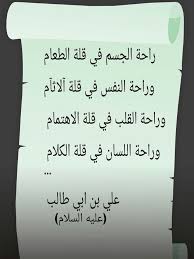 راحة الجسم في قلة الطعام
وراحة النفس في قلة الآثام
وراحة القلب في قلة الاهتمام
وراحة اللسان في قلة الكلام
...
علي بن ابي طالب
(عليه السلام)